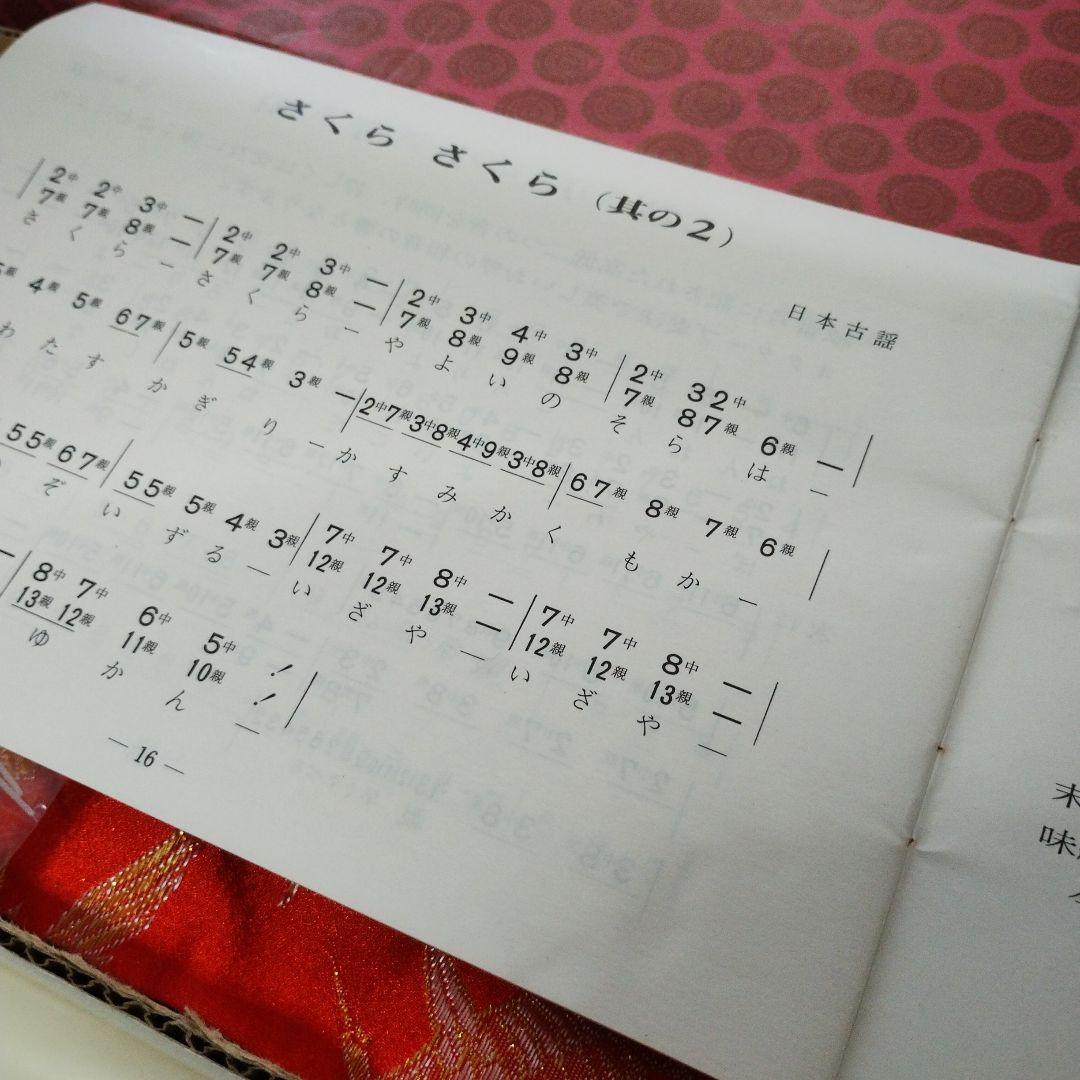 さくら さくら (其の2)
日本古謡
2中 2中 3中 ー | 2中 2中 3中 ー | 2中 3中 4中 3中 | 2中 32中
7親 7親 8親 ー | 7親 7親 8親 ー | 7親 8親 9親 8親 | 7親 87親 6親 ー |
さくらーさくらーやよいのそらはー
4親 5親 67親 | 5親 54親 3親 ー | 2中7親 3中8親 4中9親 3中8親 | 67親 8親 7親 6親 |
わたすかぎりーかすみかくもかー
55親 67親 | 55親 5親 4親 3親 | 7中 7中 8中 ー | 7中 7中 8中 ー |
12親 12親 13親 ー | 12親 12親 13親 ー |
ぞいずるーいざやーいざやー
ー | 8中 7中 6中 5中 !
13親 12親 11親 10親 ! |
ゆかんー
— 16 —
末
味